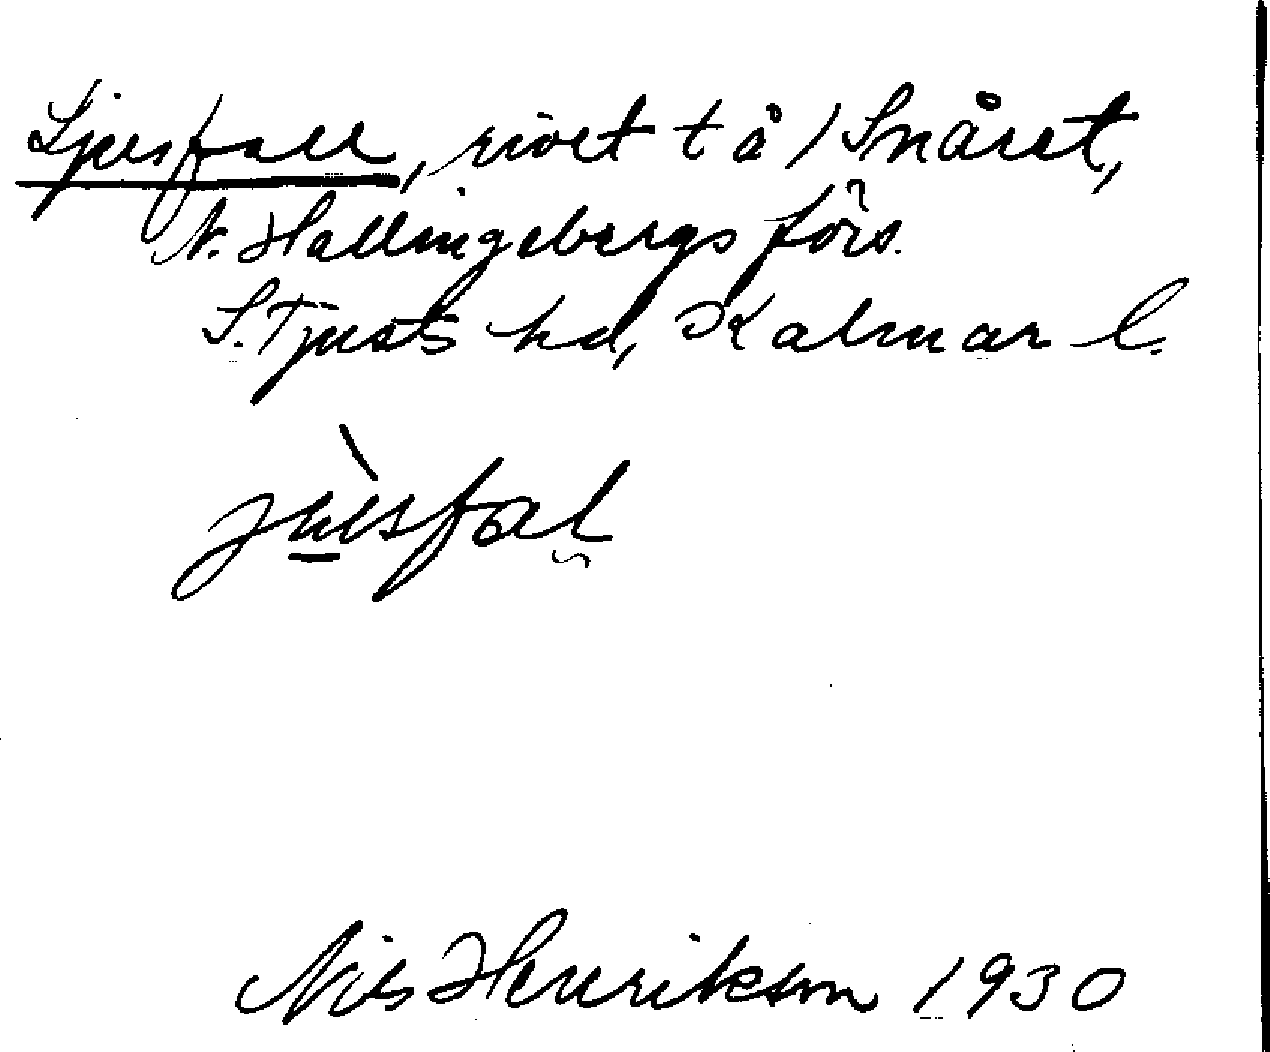 Ljusfall, rivet t å / Snåret,
N. Hallingebergs förs.
S. Tjusts hd, Kalmar l.
jùsfal
Nils Henrikson 1930